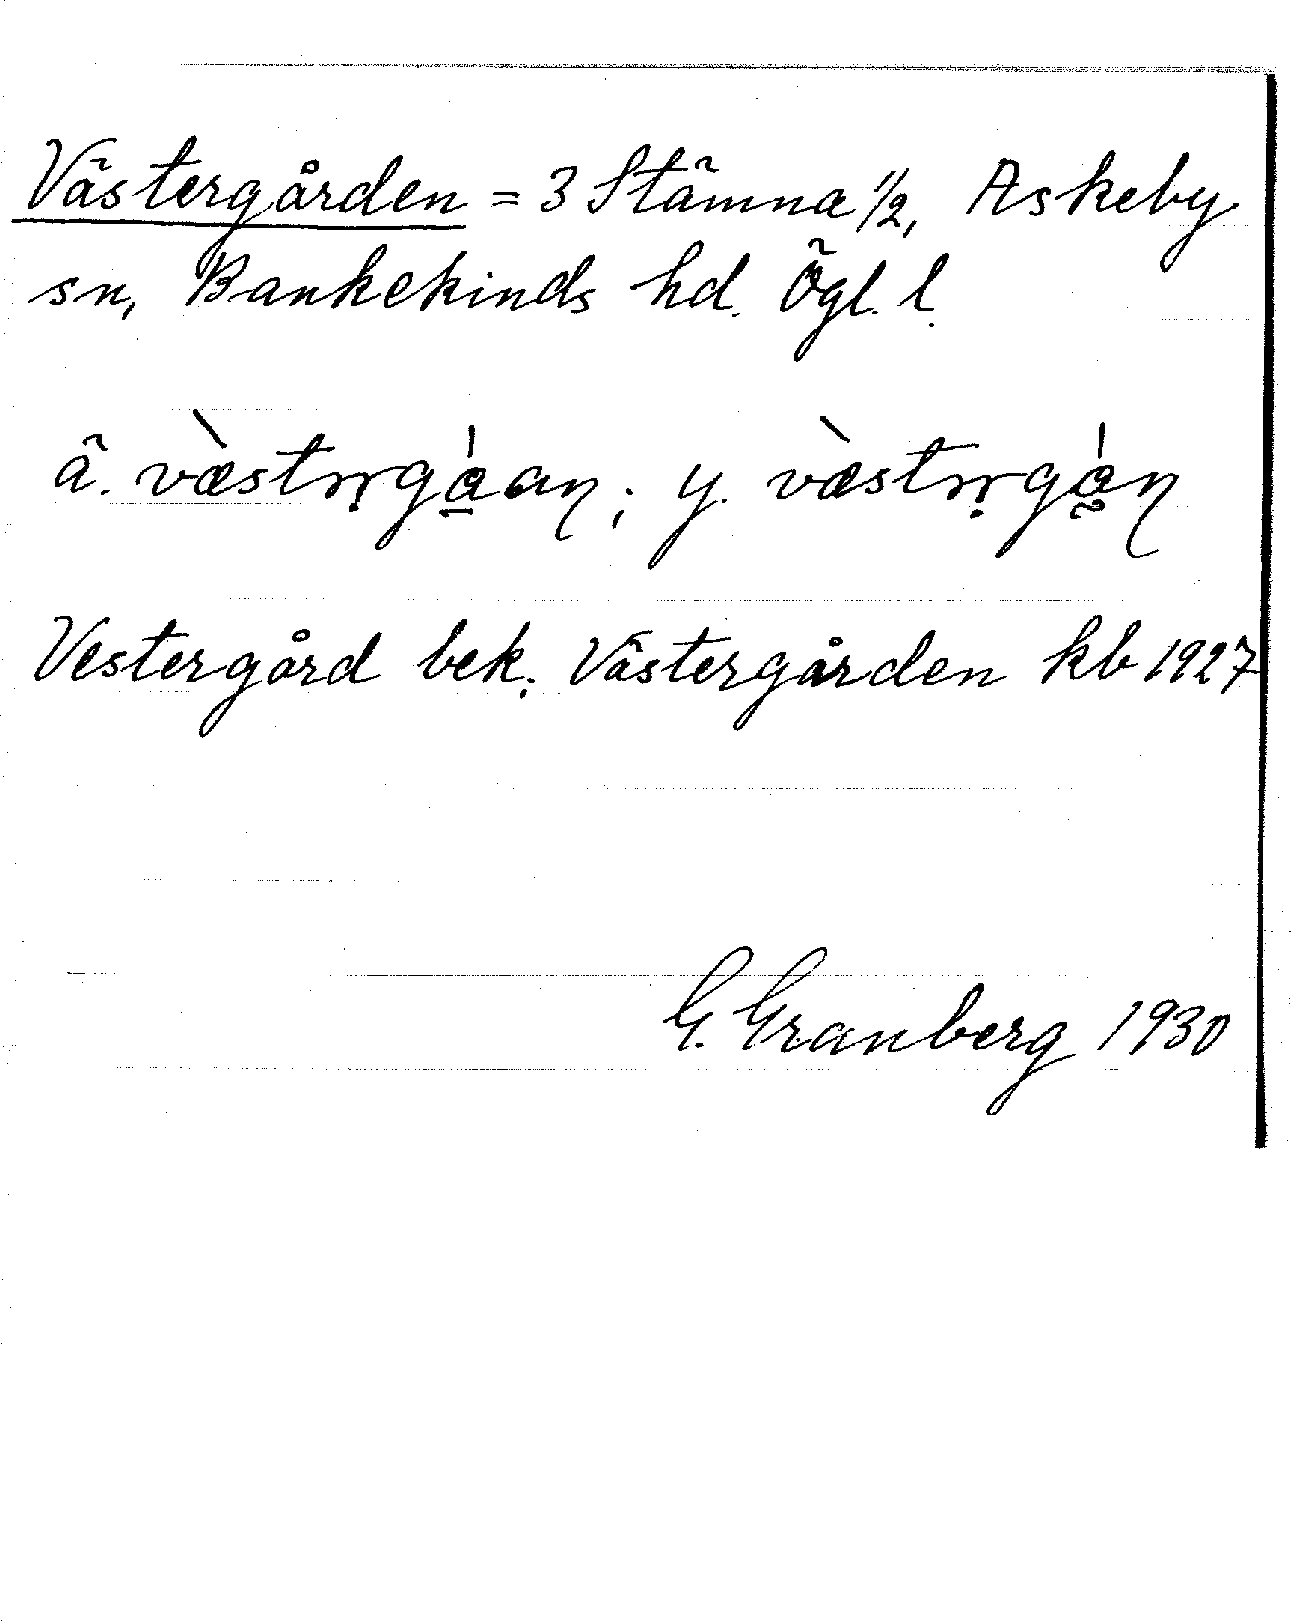 Västergården = 3 Stämna 1/2, Askeby
sn, Bankekinds hd. Ögl. l.
ä. y.
Vestergård bek. Västergården kb 1927
G. Granberg 1930